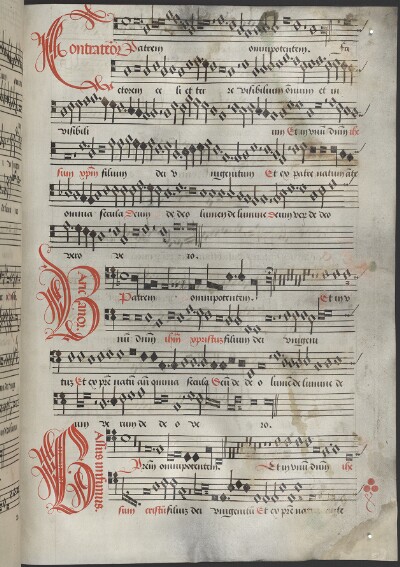 Contratenor Patrem omnipotentem. fa
ctorem ce li et ter re visibilium omnium et in
visibili um Et in unū dnm̄ ihe
sum xpm̄ filium dei v nigenitum Et ex patre natum ante
omnia secula Deum de deo lumen de lumine Deum ver de deo
vero ve ro.
Baricanor. Patrem omnipotentem. Et in v
num dnm̄ ihm̄ filium dei vnigeni
tus Et ex pre natū an omnia secula Deū de de o lumē de lumine de
um ve rum de de o ve ro.
Bassus infimus. trem omnipotentem. Et in unū dnm̄ ihe
sum cristū filiuz dei vnigenitū Et ex pre nat ante